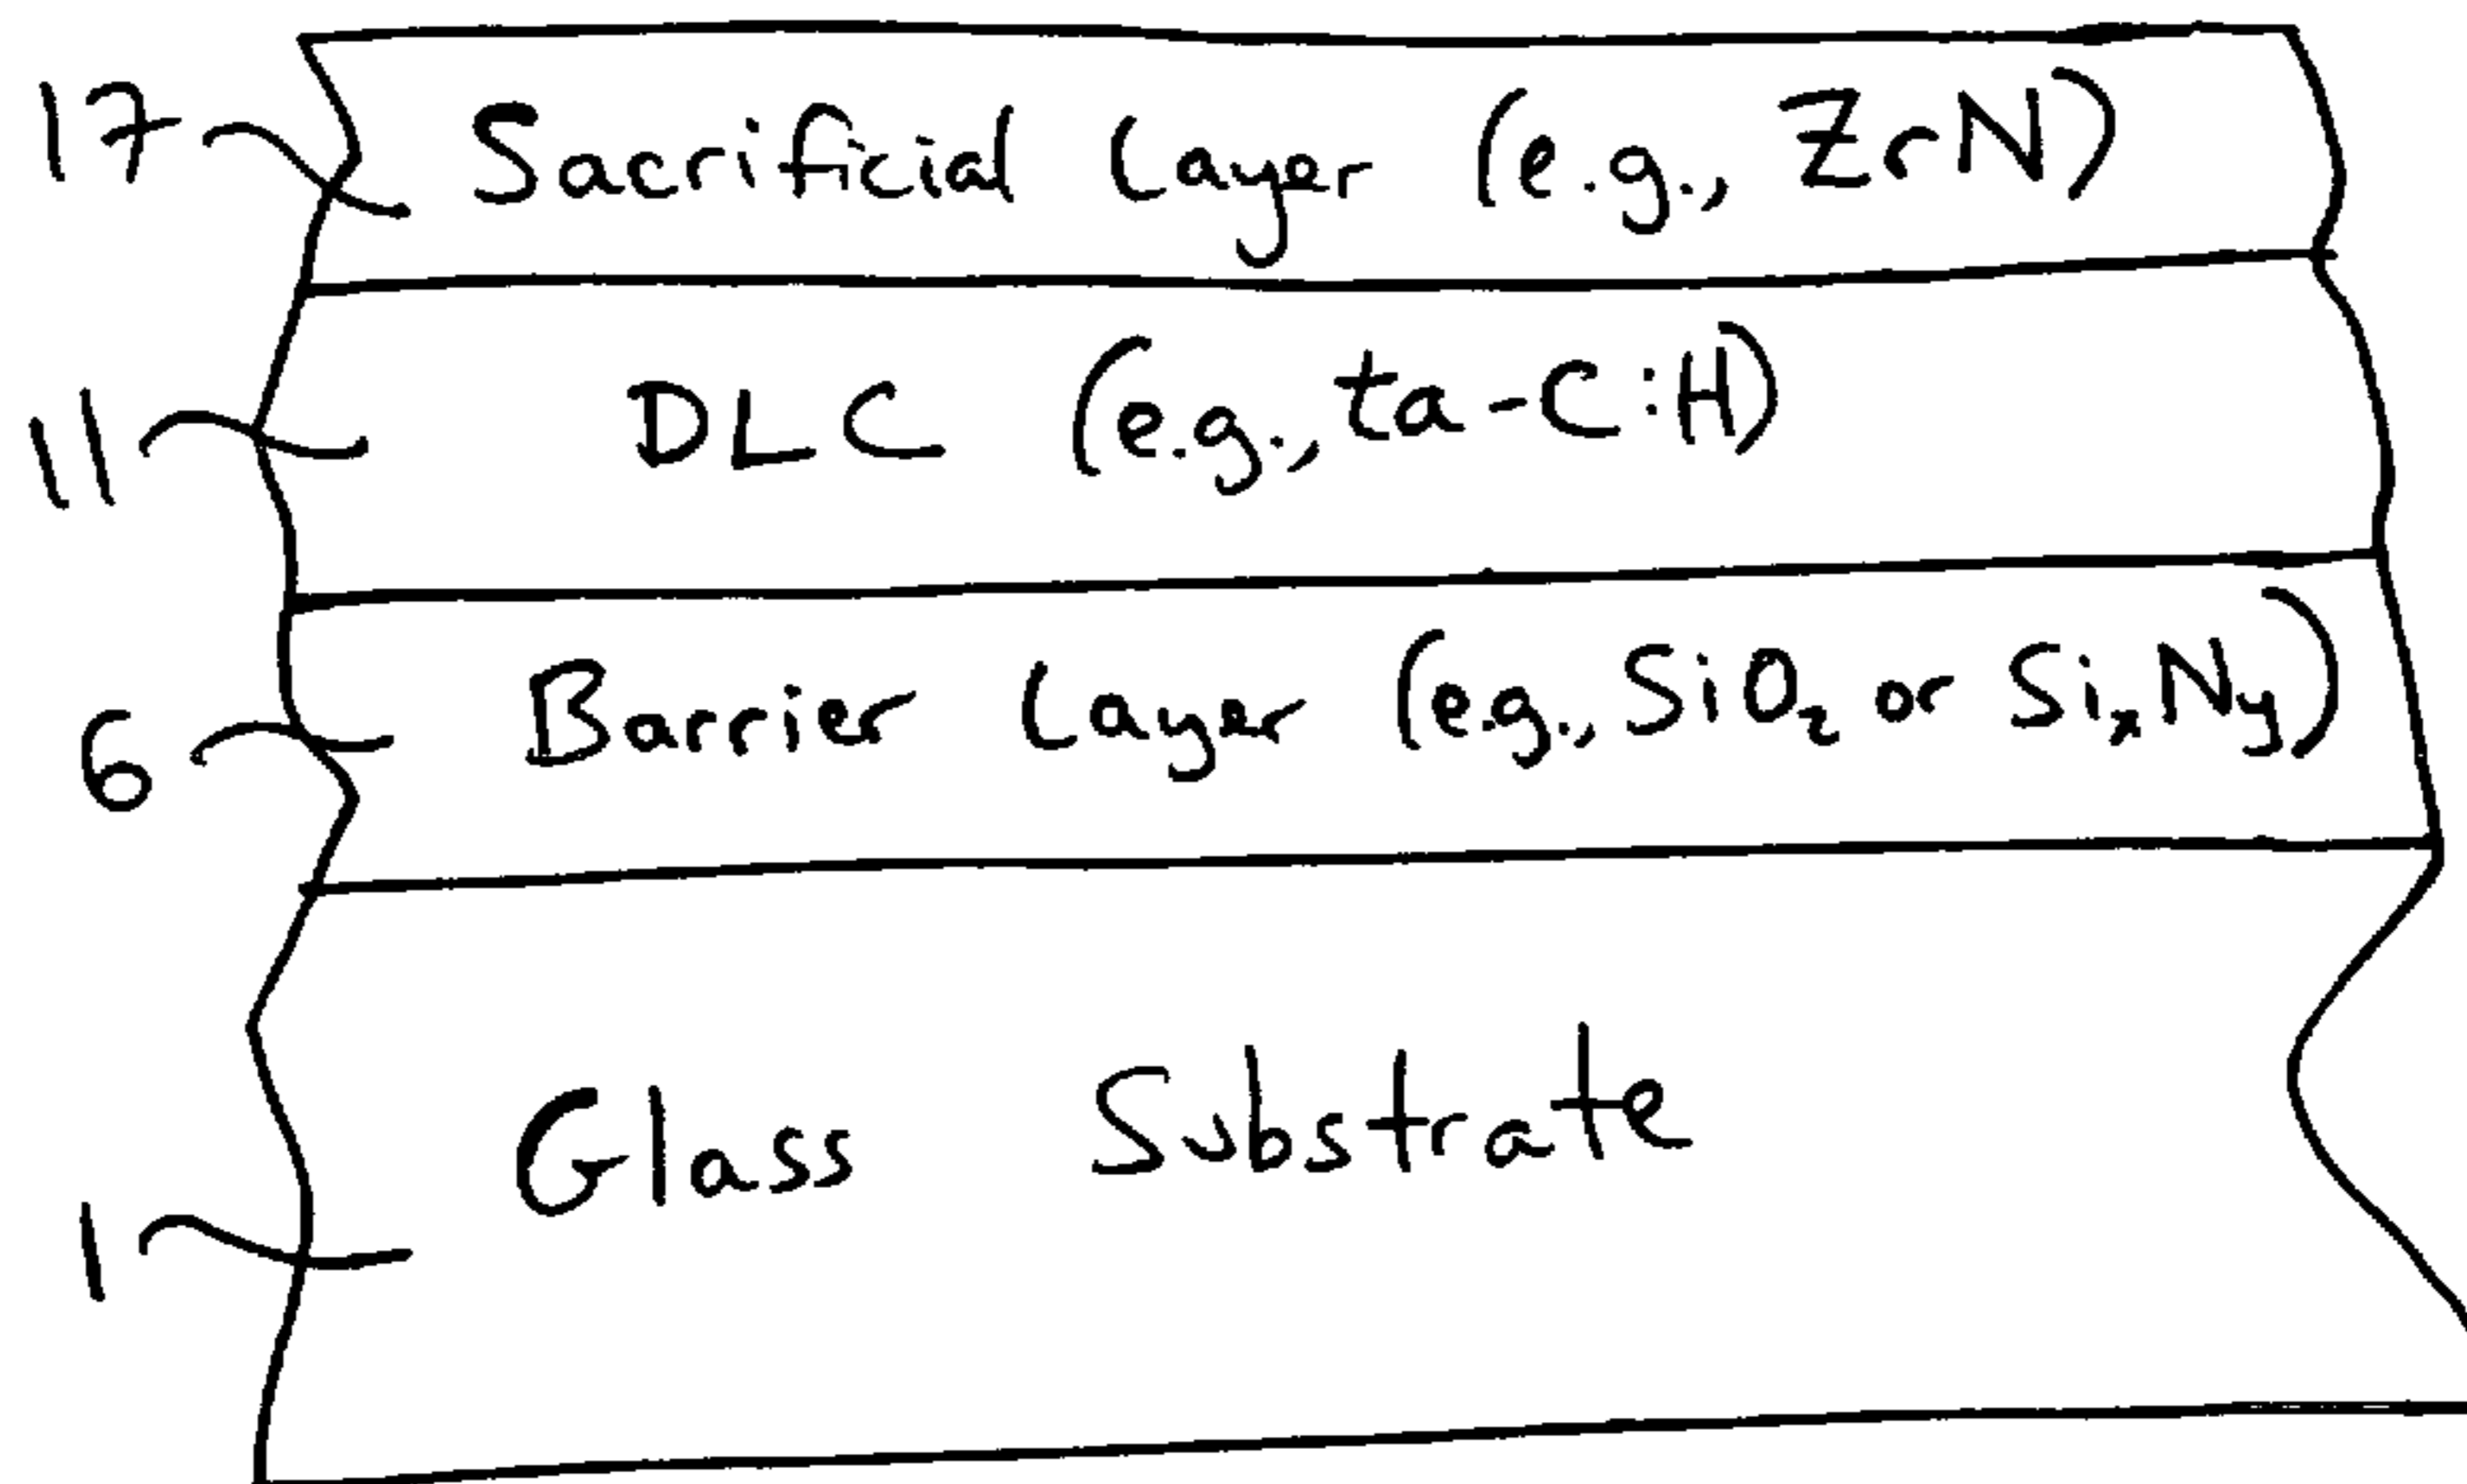 17 Sacrificial Layer (e.g., ZrN)
11 DLC (e.g., ta-C:H)
6 Barrier Layer (e.g., SiO₂ or SiₓNy)
1 Glass Substrate